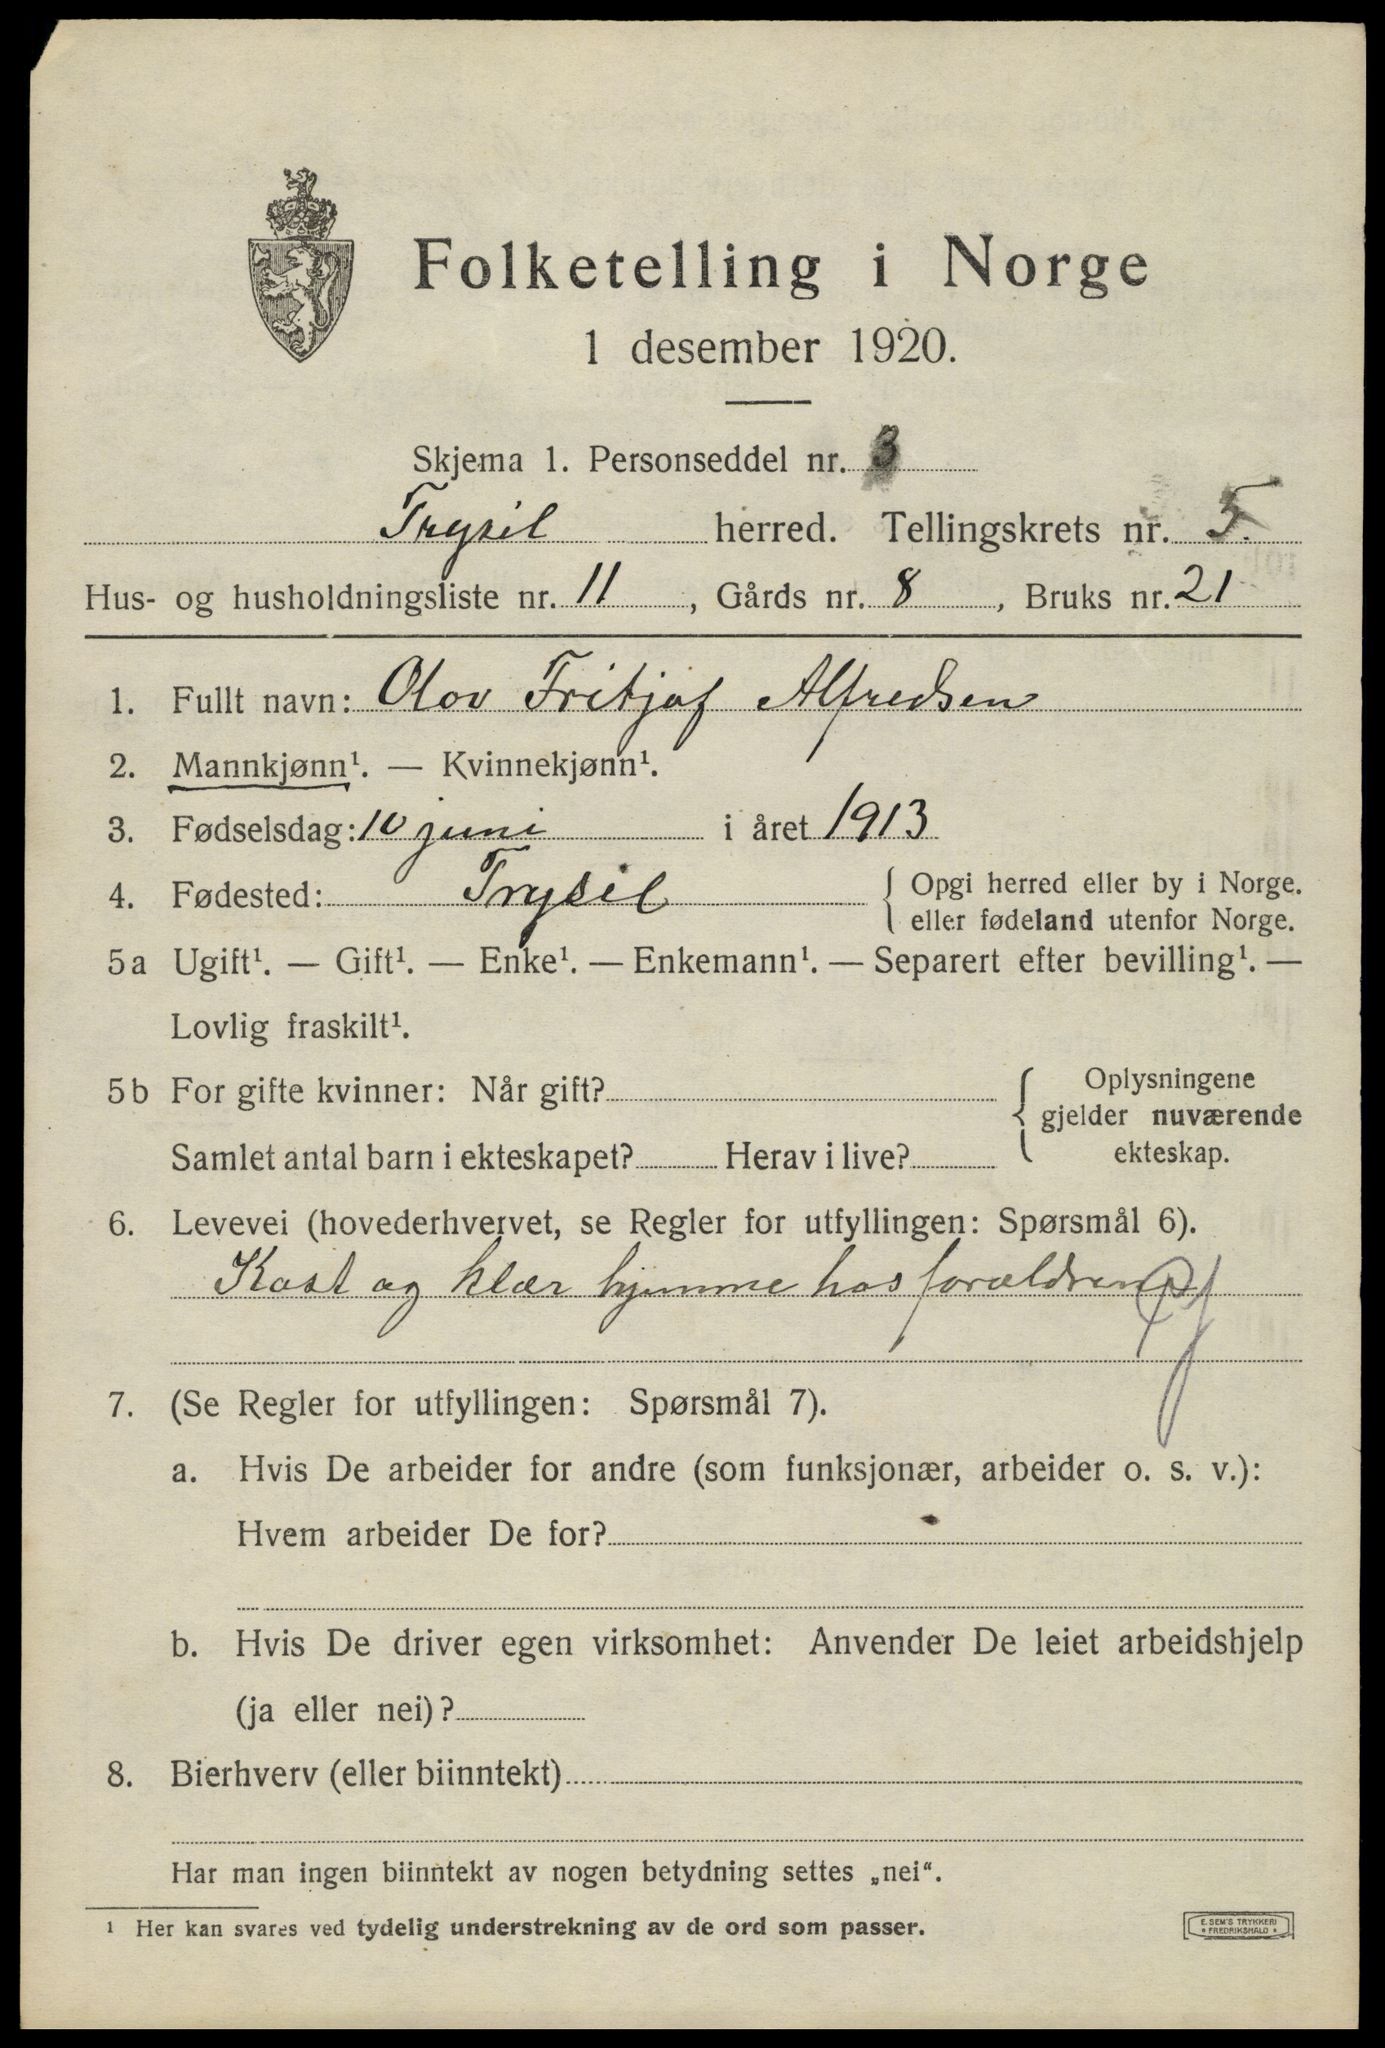 Folketelling i Norge
1 desember 1920.
Skjema 1. Personseddel nr. 3
Trysil herred. Tellingskrets nr. 5.
Hus- og husholdningsliste nr. 11, Gårds nr. 8, Bruks nr. 21
1. Fullt navn: Olov Fritjof Alfredsen
2. Mannkjønn¹. — Kvinnekjønn¹.
3. Fødselsdag: 10 juni i året 1913
4. Fødested: Trysil { Opgi herred eller by i Norge.
eller fødeland utenfor Norge.
5a Ugift¹. — Gift¹. — Enke¹. — Enkemann¹. — Separert efter bevilling¹. —
Lovlig fraskilt¹.
5b For gifte kvinner: Når gift? { Oplysningene
gjelder nuværende
Samlet antal barn i ekteskapet? Herav i live? ekteskap.
6. Levevei (hovederhvervet, se Regler for utfyllingen: Spørsmål 6).
Kost og klær hjemme hos forældrene
7. (Se Regler for utfyllingen: Spørsmål 7).
a. Hvis De arbeider for andre (som funksjonær, arbeider o. s. v.):
Hvem arbeider De for?
b. Hvis De driver egen virksomhet: Anvender De leiet arbeidshjelp
(ja eller nei)?
8. Bierhverv (eller biinntekt)
Har man ingen biinntekt av nogen betydning settes „nei“.
¹ Her kan svares ved tydelig understrekning av de ord som passer.
E. SEM'S TRYKKERI
• FREDRIKSHALD •